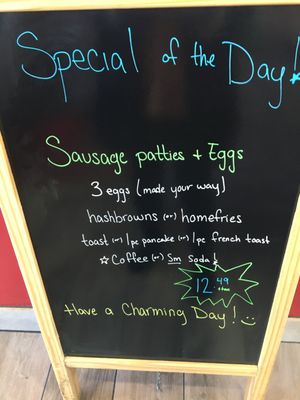 Special of the Day!
Sausage patties + Eggs
3 eggs (made your way)
hashbrowns (or) homefries
toast (or) 1pc pancake (or) 1pc french toast
☆ Coffee (or) Sm soda!
12.49
Have a Charming Day! :)